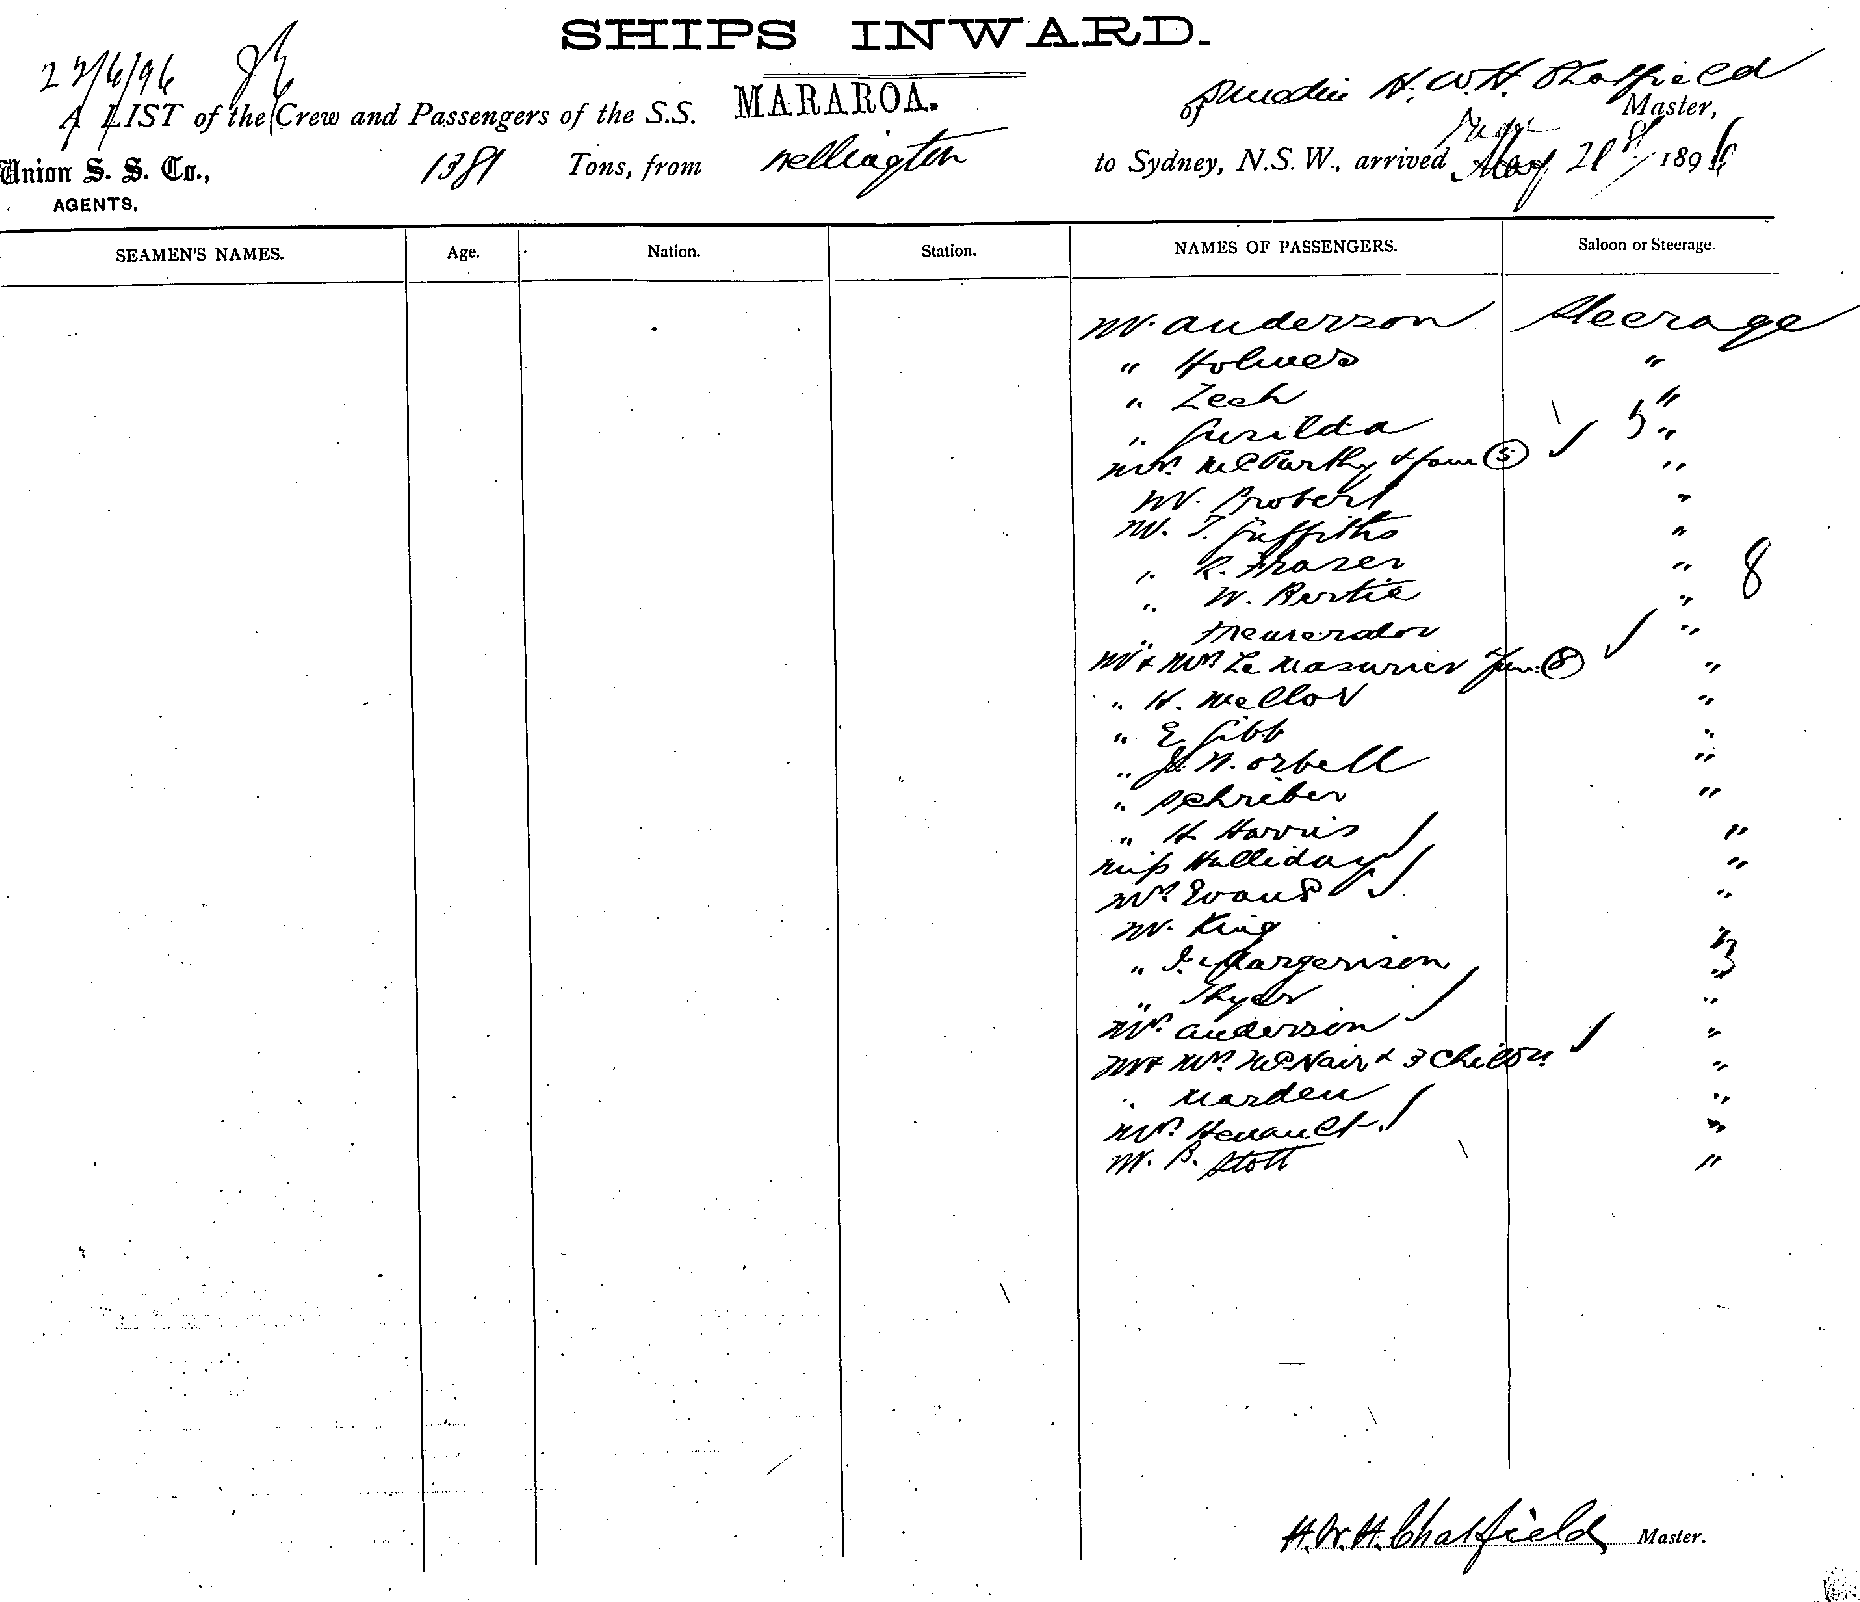 SHIPS INWARD.
22/6/96
A LIST of the Crew and Passengers of the S.S. MARAROA. of Dunedin H. W. H. Chatfield Master,
Union S. S. Co., AGENTS, 1381 Tons, from Wellington to Sydney, N.S.W., arrived 21st 1896
SEAMEN'S NAMES. Age. Nation. Station. NAMES OF PASSENGERS. Saloon or Steerage.
Mr. Anderson Steerage
" Holmes "
" Zech "
" "
Mrs. McCarthy & fam (5) "
Mr. Probert "
Mr. T. Griffiths "
" R. Fraser " 8
" W. Bertie "
" "
Mr & Mrs Le Masurier fam (8) "
" H. Mellor "
" E. Gibb "
" W. Orbell "
" Schriber "
" H. Harris "
Miss Halliday "
Mrs Evans "
Mr. King "
" J. Margerison " 3
" "
Mrs. Anderson "
Mr & Mrs McNair & 3 Childn "
" Marden "
Mrs. Henault "
Mr. B. Stott "
H. W. H. Chatfield Master.